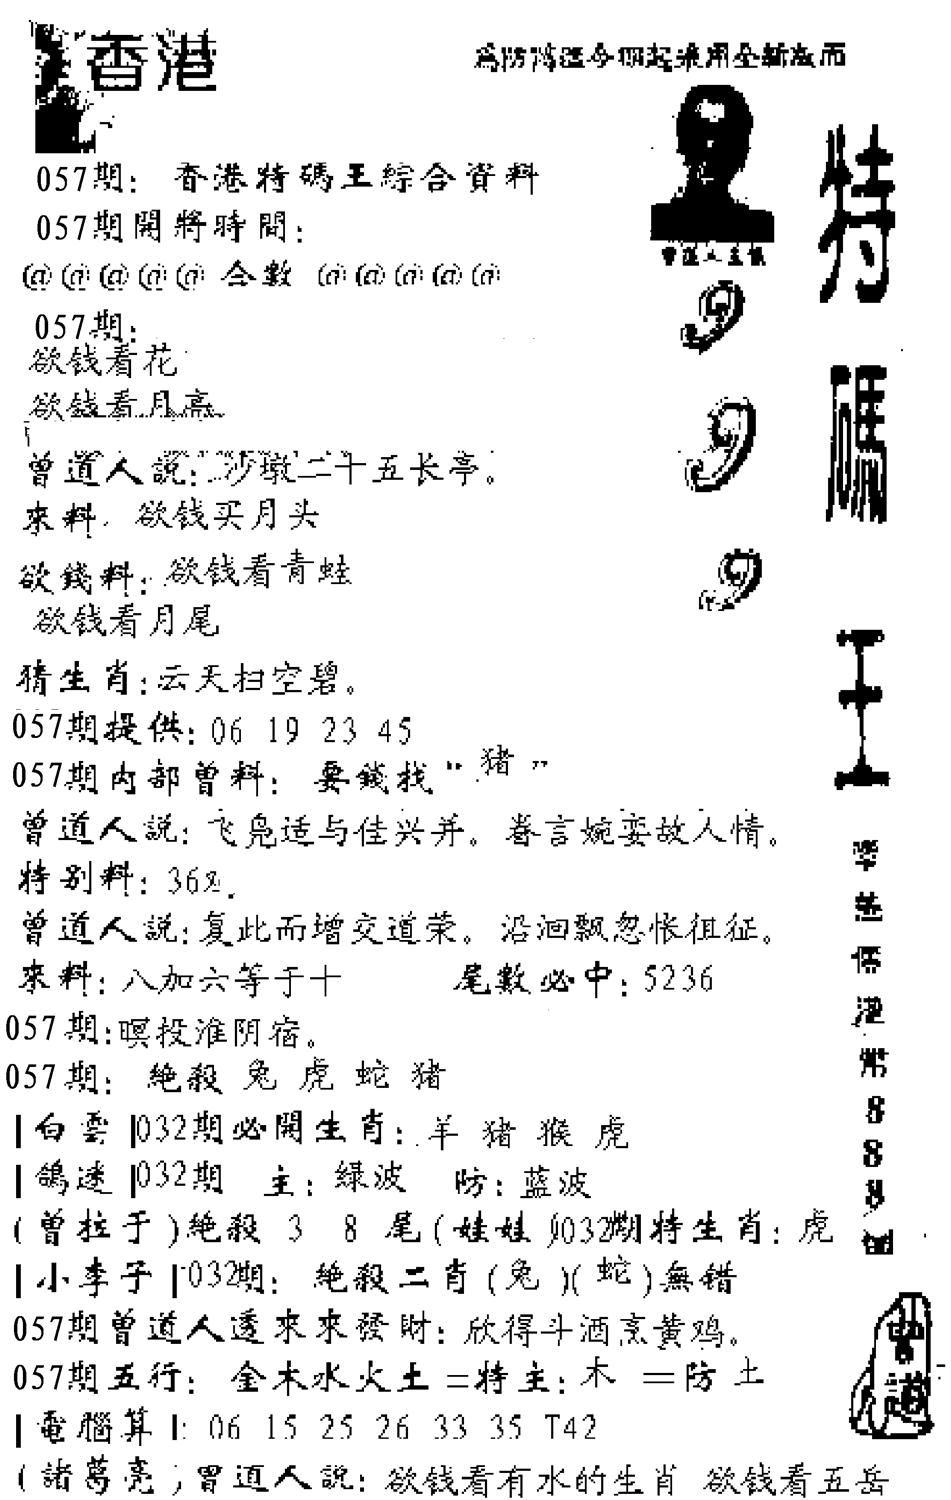 香港
為防濤溫今期起采用全新版面
057期: 香港特碼王綜合資料
057期開將時間:
@@@@@ 合數 @@@@@
057期:
欲钱看花
欲钱看月亮
曾道人説: 沙墩二十五长亭。
來料. 欲钱买月头
欲錢料: 欲钱看青蛙
欲钱看月尾
猜生肖:云天扫空碧。
057期提供: 06 19 23 45
057期内部曾料: 要錢找“猪”
曾道人説: 飞凫适与佳兴并。眷言婉娈故人情。
特别料: 36
曾道人説: 复此而增交道荣。沿洄飘忽怅徂征。
來料: 八加六等于十 尾數必中: 5236
057期:暝投淮阴宿。
057期: 絶殺 兔 虎 蛇 猪
|白雲|032期必開生肖: 羊 猪 猴 虎
|鴿迷|032期 主: 緑波 防: 蓝波
(曾拉于)絶殺 3 8 尾(娃娃)032期特生肖: 虎
|小李子|032期: 絶殺二肖(兔)(蛇)無错
057期曾道人透來來發財: 欣得斗酒烹黄鸡。
057期五行: 金木水火土=特主: 木 =防 土
|電腦算|: 06 15 25 26 33 35 T42
(諸葛亮)曾道人説: 欲钱看有水的生肖 欲钱看五岳
曾道人主供
999
特碼王
港幣888圓
曾道